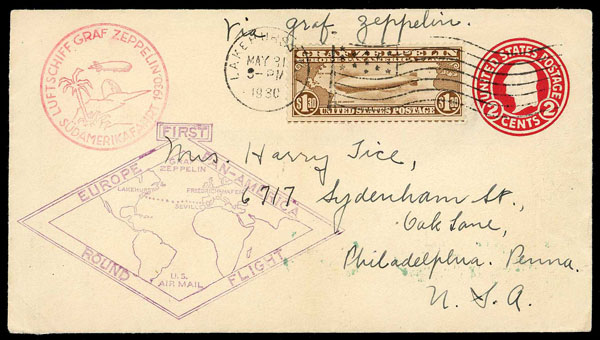 via graf zeppelin.
LUFTSCHIFF GRAF ZEPPELIN 1930
SÜDAMERIKAFAHRT
LAKEHURST
MAY 31
1930
GRAF ZEPPELIN
$1.30 $1.30
UNITED STATES POSTAGE
UNITED STATES POSTAGE
2 CENTS 2
FIRST
EUROPE PAN-AMERICA
ROUND FLIGHT
GRAF
ZEPPELIN
LAKEHURST
FRIEDRICHSHAFEN
SEVILLE
U.S.
AIR MAIL
Mrs. Harry Tice,
6717 Sydenham St.,
Oak Lane,
Philadelphia. Penna.
U. S. A.